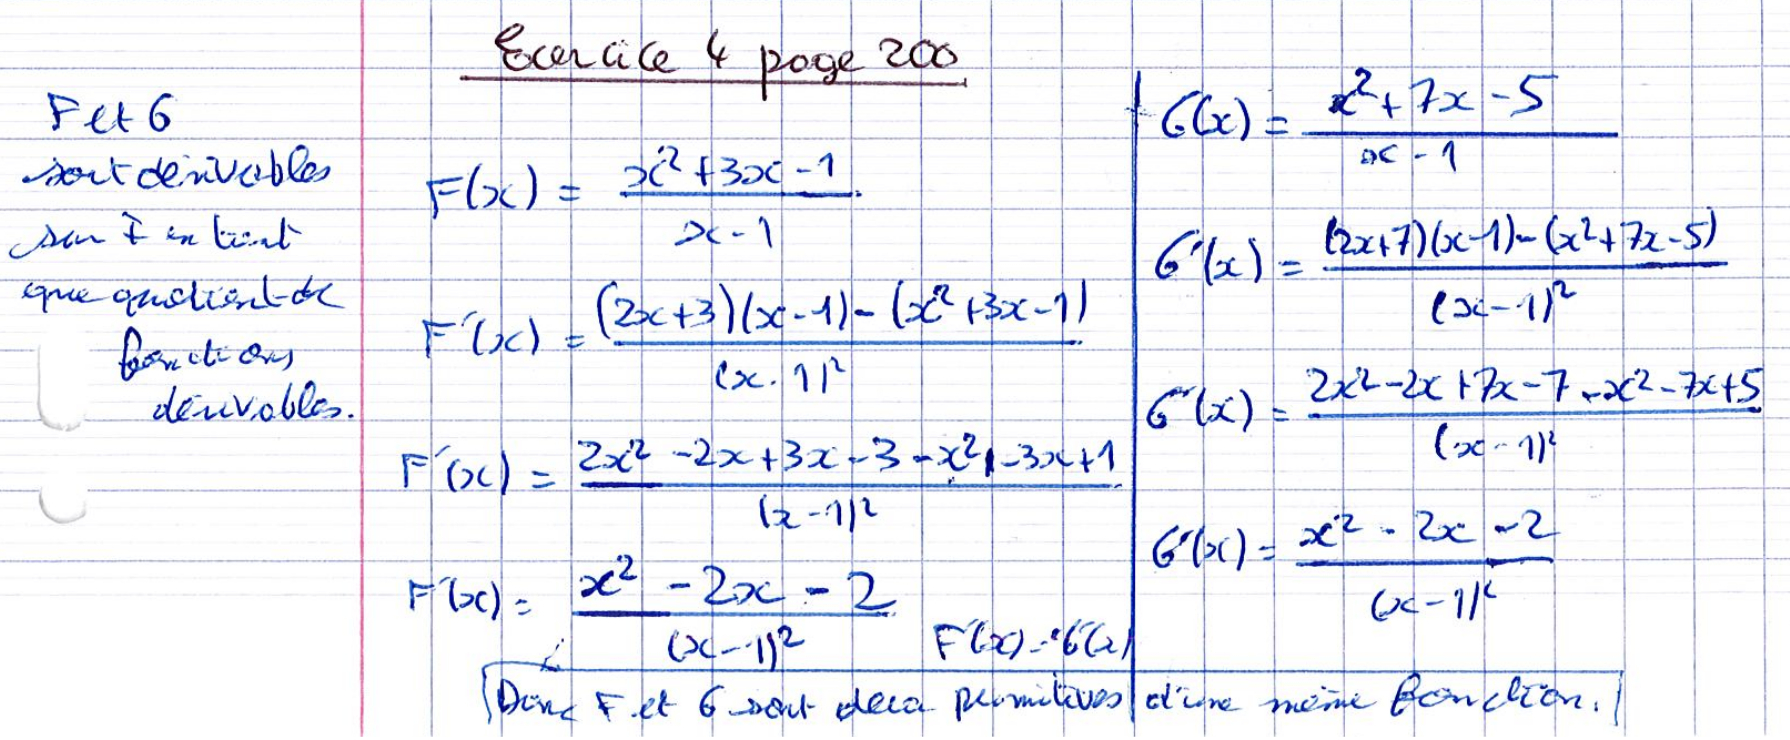 Exercice 4 page 200
F et G
sont dérivables
sur I en tant
que quotient de
fonctions
dérivables.
F(x) = (x²+3x-1)/(x-1)
F'(x) = ((2x+3)(x-1)-(x²+3x-1))/(x-1)²
F'(x) = (2x²-2x+3x-3-x²-3x+1)/(x-1)²
F'(x) = (x²-2x-2)/(x-1)²
G(x) = (x²+7x-5)/(x-1)
G'(x) = ((2x+7)(x-1)-(x²+7x-5))/(x-1)²
G'(x) = (2x²-2x+7x-7-x²-7x+5)/(x-1)²
G'(x) = (x²-2x-2)/(x-1)²
F'(x) = G'(x)
Donc F et G sont deux primitives d'une même fonction.